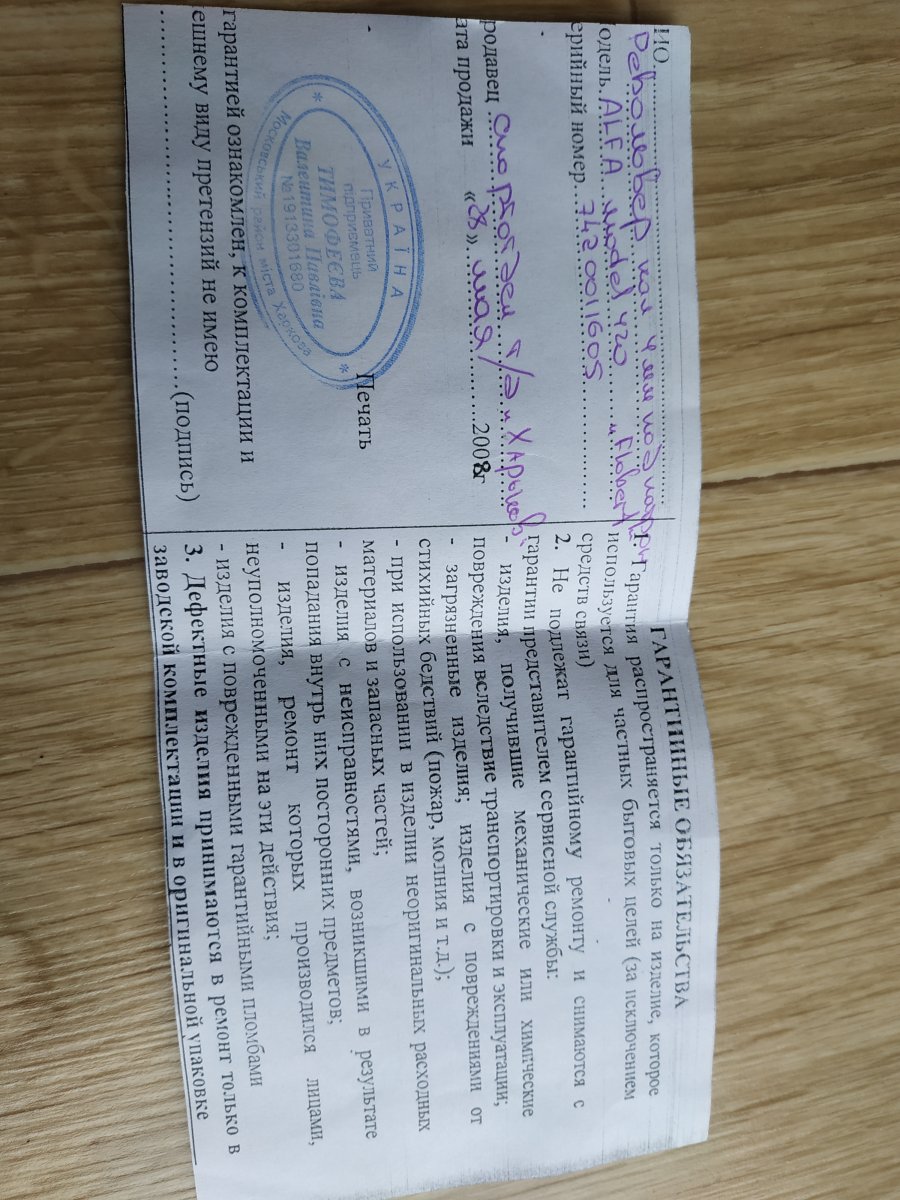 ИО
Револьвер кал 4 мм под патрон
одель ALFA model 420 "Flobert"
ерийный номер 7420011605
родавец спортотдел я/э и Харьков.
ата продажи «28» мая/ 2008г
- - Печать
УКРАЇНА
Приватний
підприємець
ТИМОФЕЄВА
Валентина Павлівна
№1913301680
Московський район міста Харкова
гарантией ознакомлен, к комплектации и
ешнему виду претензий не имею
(подпись)
ГАРАНТИЙНЫЕ ОБЯЗАТЕЛЬСТВА
1. Гарантия распространяется только на изделие, которое
используется для частных бытовых целей (за исключением
средств связи)
2. Не подлежат гарантийному ремонту и снимаются с
гарантии представителем сервисной службы:
- изделия, получившие механические или химические
повреждения вследствие транспортировки и эксплуатации;
- загрязненные изделия; изделия с повреждениями от
стихийных бедствий (пожар, молния и т.д.);
- при использовании в изделии неоригинальных расходных
материалов и запасных частей;
- изделия с неисправностями, возникшими в результате
попадания внутрь них посторонних предметов;
- изделия, ремонт которых производился лицами,
неуполномоченными на эти действия;
- изделия с поврежденными гарантийными пломбами
3. Дефектные изделия принимаются в ремонт только в
заводской комплектации и в оригинальной упаковке